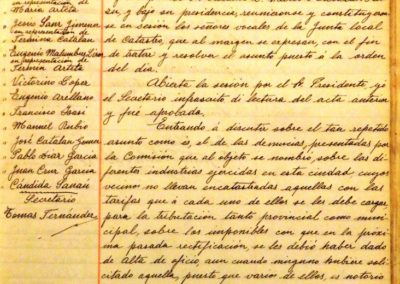 en representación de
Maria Arteta
Jesús Sanz Jimena
con representación de
Fermina Catalan
Eugenio Malumbres
en representación de
Fermin Arteta
Victorino López
Eugenio Arellano
Francisco
Manuel Rubio
José Catalan
Pablo Garcia
Juan Cruz Garcia
Cándida
Secretario
Tomas Fernandez
y bajo su presidencia, reunieronse y constituyeron
se en sesión los señores vocales de la Junta local
de Catastro, que al margen se expresan, con el fin
de tratar y resolver el asunto puesto á la orden
del dia.
Abierta la sesión por el Sr. Presidente, yo
el Secretario infrascrito di lectura del acta anterior
y fué aprobada.
Entrando á discutir sobre el tan repetido
asunto como es, el de las denuncias, presentadas por
la Comisión que al objeto se nombró, sobre las di-
ferentes industrias ejercidas en esta ciudad, cuyos
vecinos no llevan encatastradas aquellas con las
tarifas que á cada uno de ellos se les debe cargar
para la tributación tanto provincial como muni-
cipal, sobre los imponibles con que en la próxi-
ma pasada rectificación, se les debió haber dado
de alta de oficio, aun cuando ninguno hubiere soli-
citado aquella, puesto que varios de ellos, es notorio